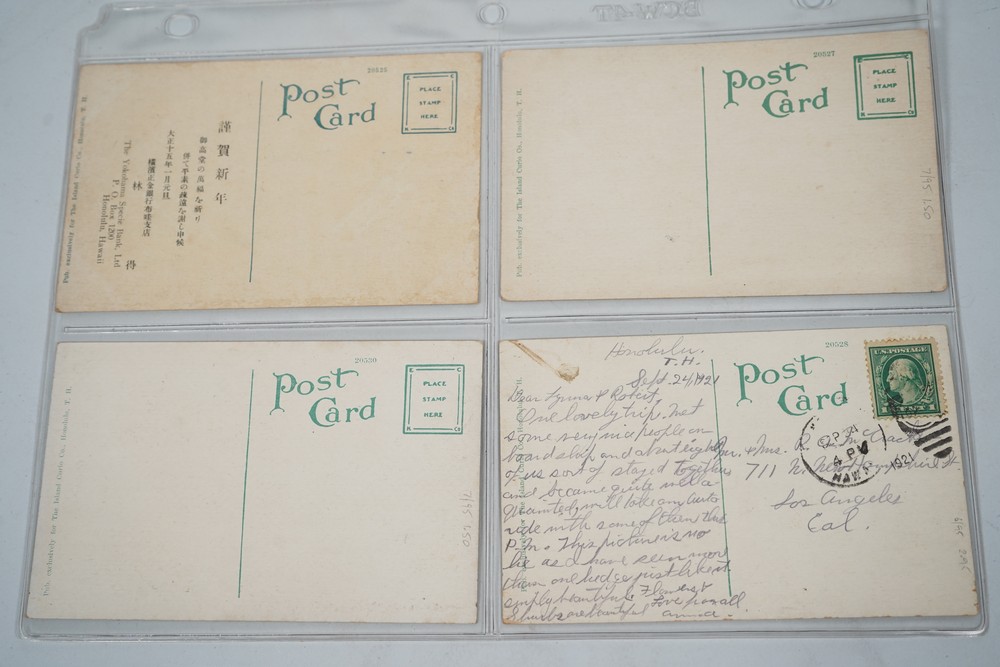 20525
Post
Card
PLACE
STAMP
HERE
謹賀新年
御高堂の萬福を祈り
併て平素の疎遠を謝し申候
大正十五年一月元旦
橫濱正金銀行布哇支店
林 得
The Yokohama Specie Bank, Ltd
P. O. Box 1200
Honolulu, Hawaii
Pub. exclusively for The Island Curio Co., Honolulu, T. H.
20527
Post
Card
PLACE
STAMP
HERE
Pub. exclusively for The Island Curio Co., Honolulu, T. H.
7/95 L50
20530
Post
Card
PLACE
STAMP
HERE
Pub. exclusively for The Island Curio Co., Honolulu, T. H.
7/95 L50
20528
Post
Card
U.S. POSTAGE
1 CENT 1
4 PM
1921
HAWAII
Honolulu.
T.H.
Sept. 24, 1921
Dear Lynna &
One lovely trip. Met
some very nice people on
board ship and about eight
of us sort of stayed together
and became quite well a
quainted, will take an auto
ride with some of them this
P.M. This picture is no
lie as I have seen more
than one hedge just like it
simply beautiful. Flowers &
Shrubs are beautiful Love from all
Anna
& Mrs. R.
711 N. New Hampshire St.
Los Angeles
Cal.